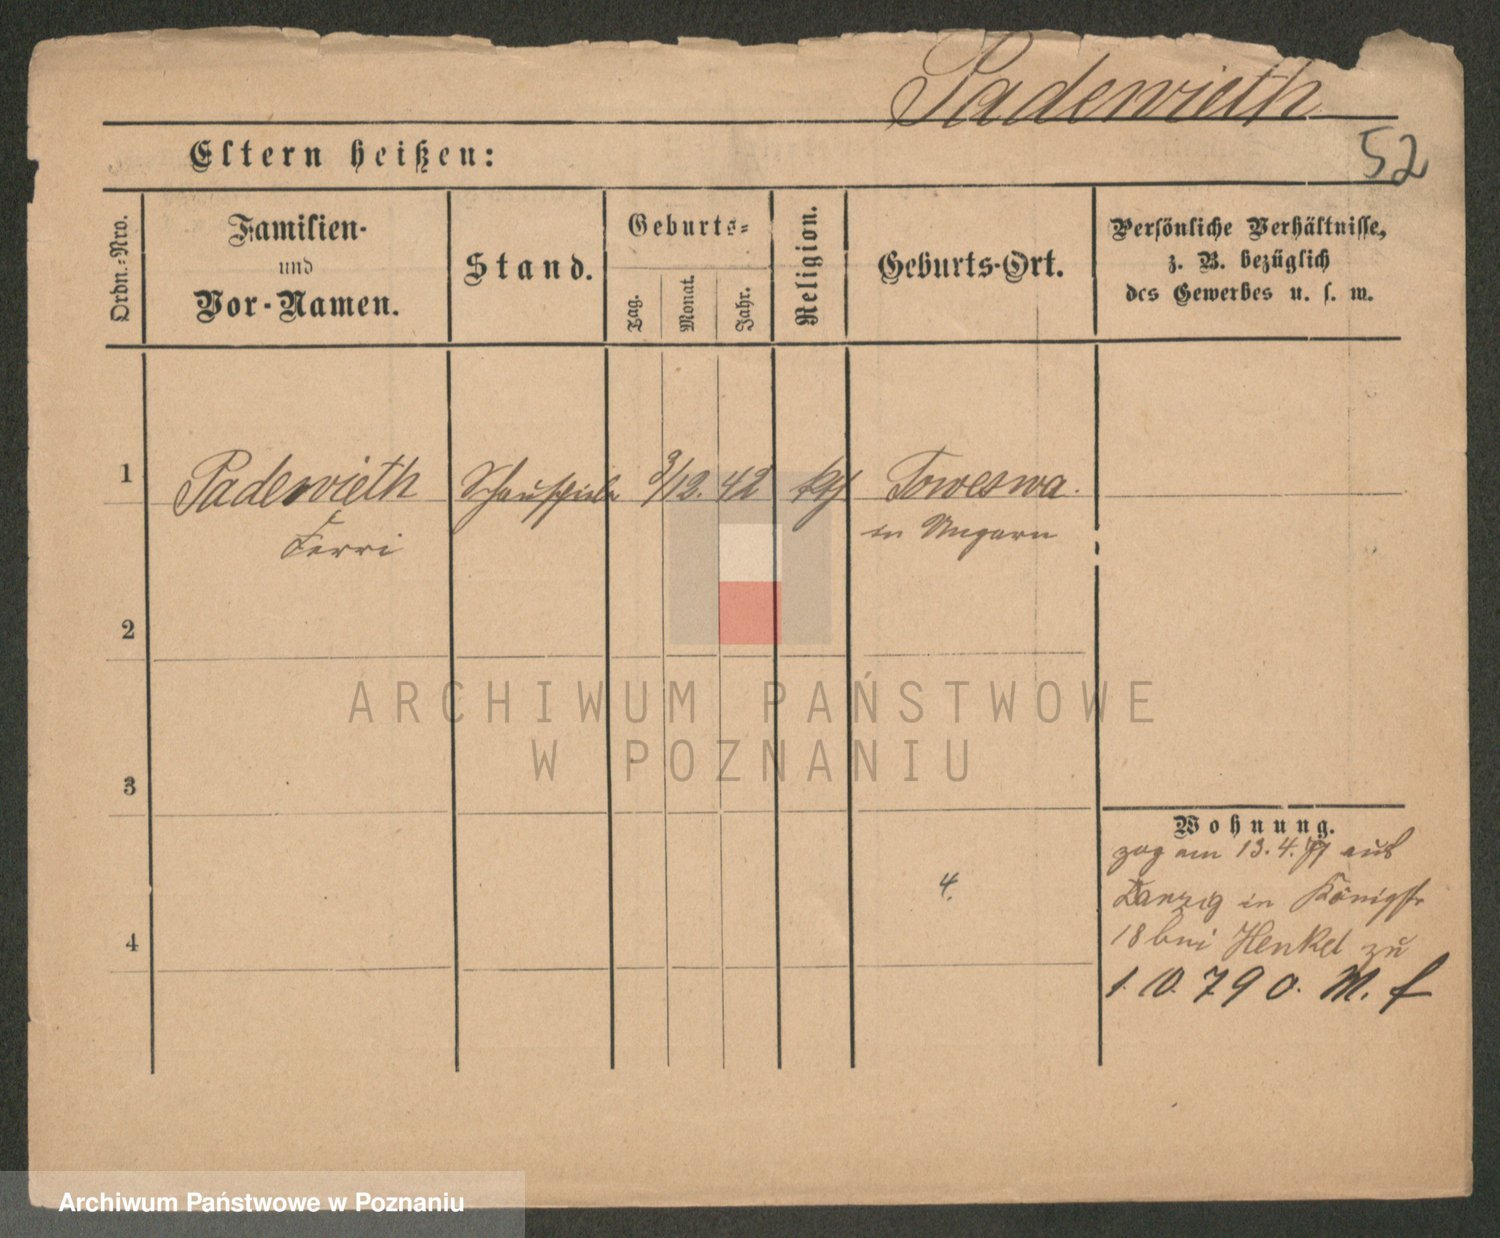 Paderwieth
52
Eltern heißen:
Ordn.-Nro.
Familien-
und
Vor-Namen.
Stand.
Geburts-
Tag.
Monat.
Jahr.
Religion.
Geburts-Ort.
Persönliche Verhältnisse,
z. B. bezüglich
des Gewerbes u. s. w.
1 Paderwieth Schauspieler 3/12. 42 Toweswa.
Ferri in Ungarn
2
3
4
4.
Wohnung.
zog am 13.4.71 aus
Danzig in Königstr
18 bei Henkel zu
1. 10. 790. M. f
ARCHIWUM PAŃSTWOWE
W POZNANIU
Archiwum Państwowe w Poznaniu